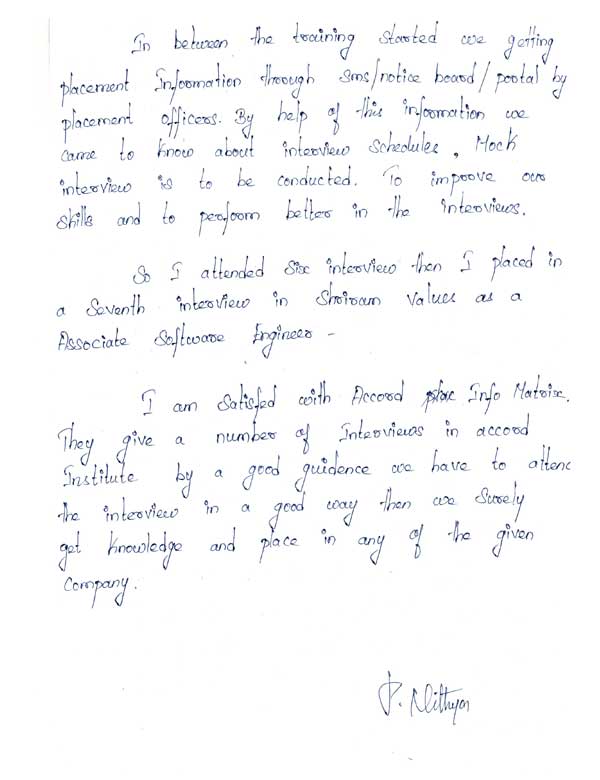 In between the training started we getting
placement Information through sms/notice board/portal by
placement officers. By help of this information we
came to know about interview schedules, Mock
interview is to be conducted. To improve our
skills and to perform better in the interviews.
So I attended six interview then I placed in
a Seventh interview in Shriram Values as a
Associate Software Engineer -
I am Satisfed with Accord Info Matrix.
They give a number of Interviews in accord
Institute by a good guidence we have to attend
the interview in a good way then we Surely
get knowledge and place in any of the given
Company.
P. Nithya